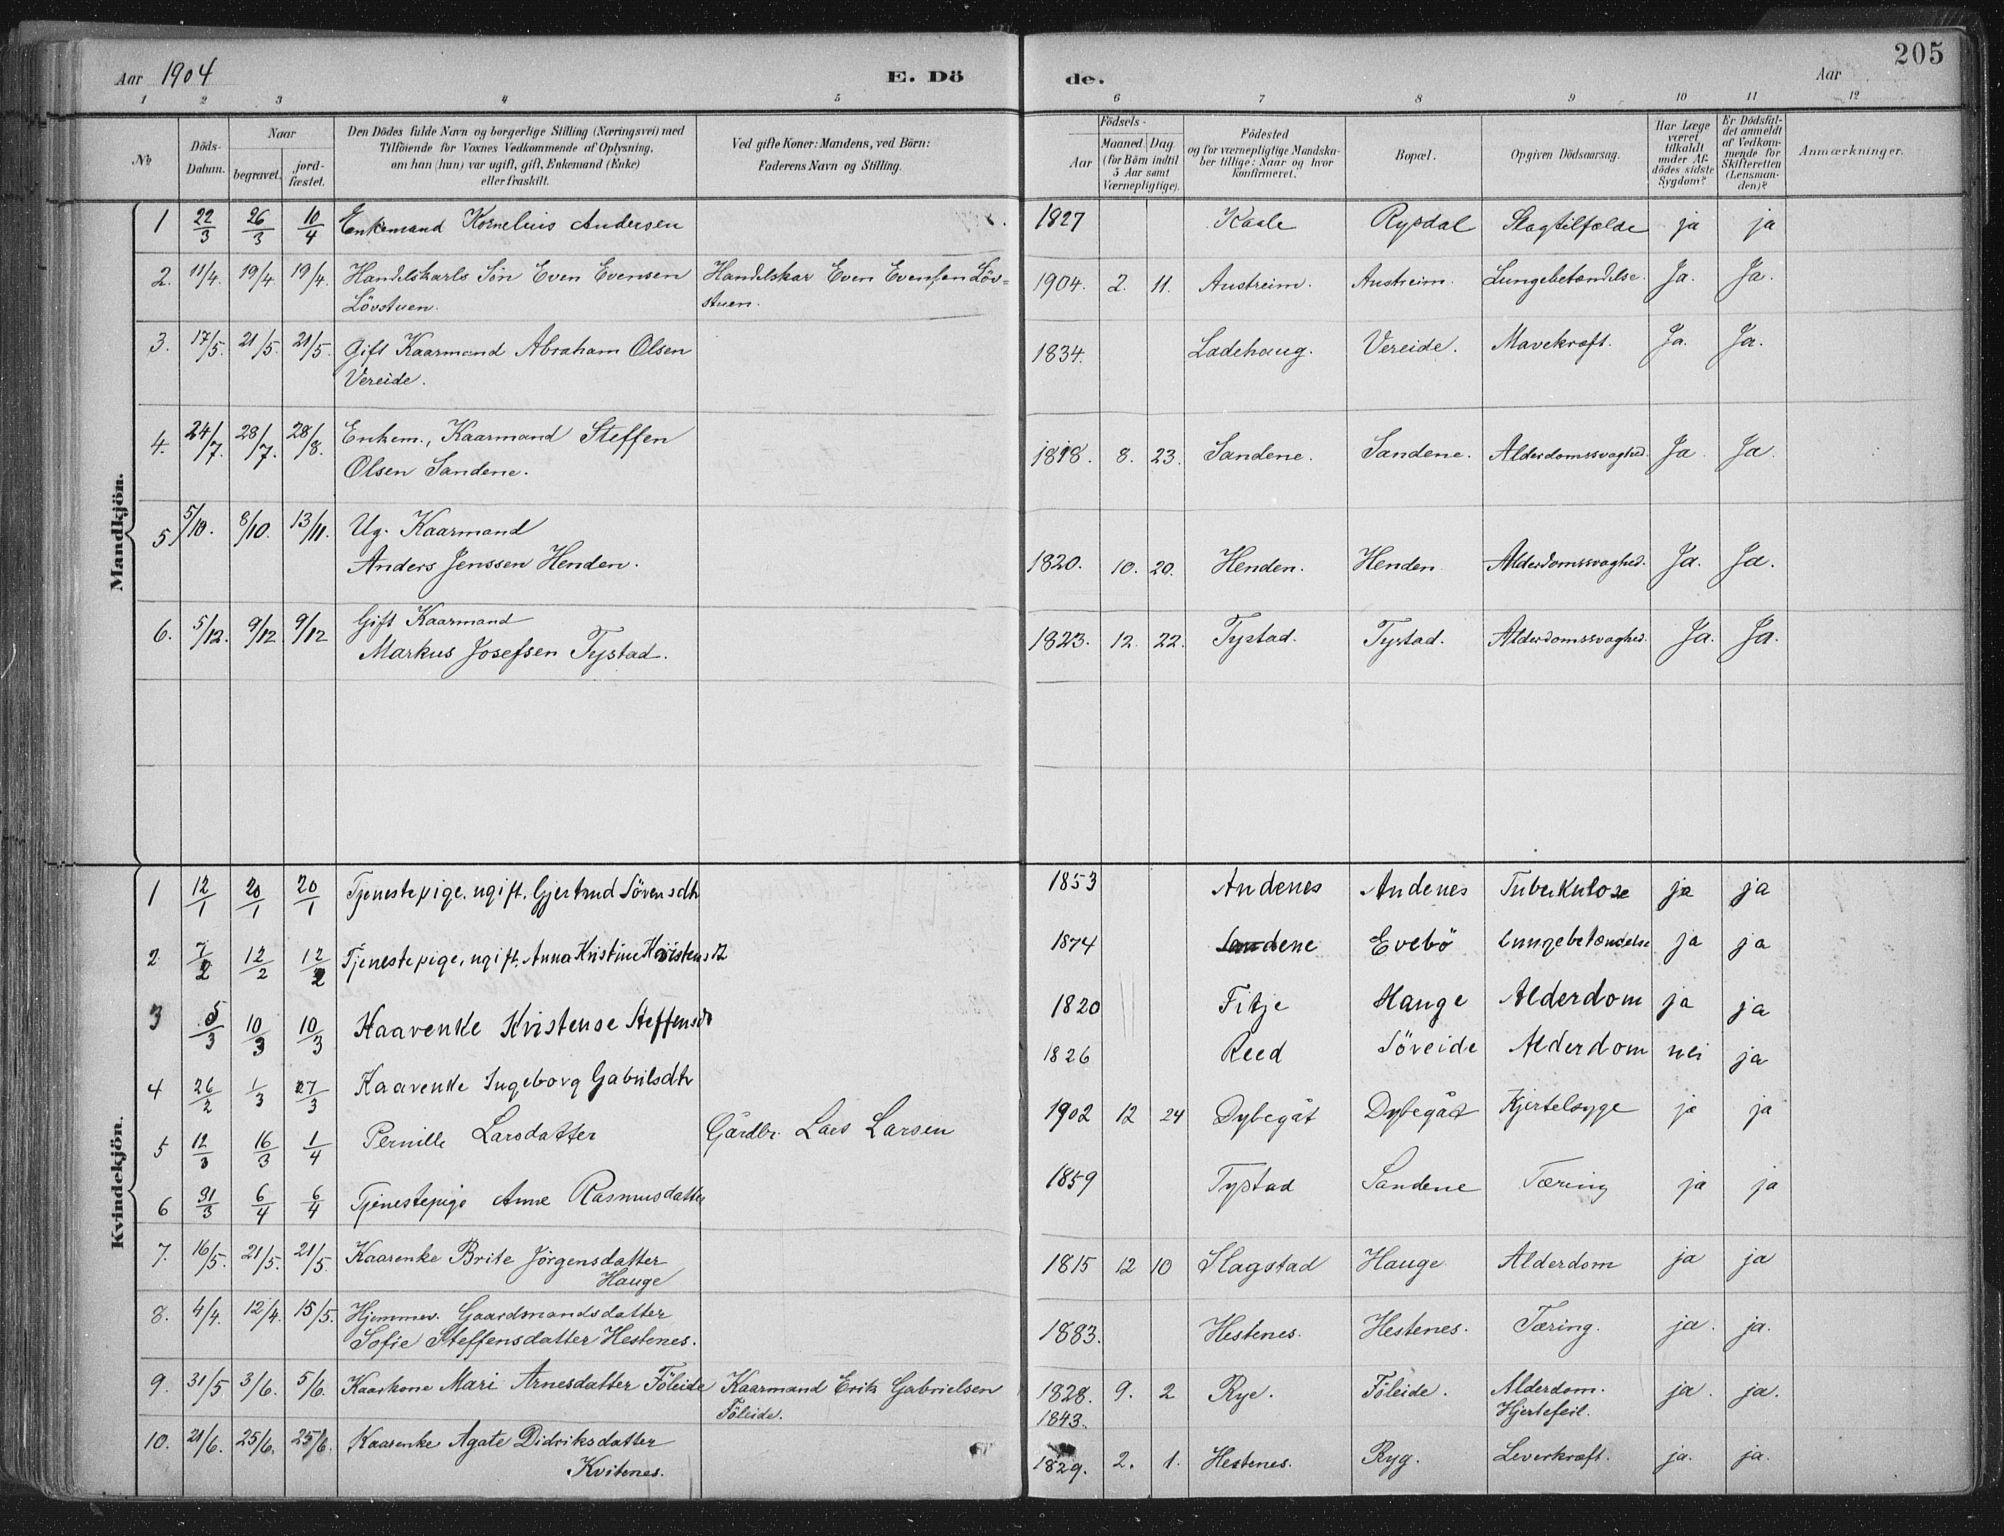 Aar 1904 E. Dö de. Aar 205
1 2 3 4 5 6 7 8 9 10 11 12
No
Döds-Datum.
Naar
begravet.
jord-fæstet.
Den Dödes fulde Navn og borgerlige Stilling (Næringsvei) med
Tilföiende for Voxnes Vedkommende af Oplysning,
om han (hun) var ugift, gift, Enkemand (Enke)
eller fraskilt.
Ved gifte Koner: Mandens, ved Börn:
Faderens Navn og Stilling.
Födsels-
Aar
Maaned Dag
(for Börn indtil
5 Aar samt
Værnepligtige).
Födested
og for værnepligtige Mandska-
ber tillige: Naar og hvor
konfirmeret.
Bopæl.
Opgiven Dödsaarsag.
Har Læge
været
tilkaldt
under Af-
dödes sidste
Sygdom?
Er Dödsfal-
det anmeldt
af Vedkom-
mende for
Skifteretten
(Lensman-
den)?
Anmærkninger.
Mandkjön.
1 22/3 26/3 10/4 Enkemand Kornelius Andersen 1827 Rygdal Slagtilfælde ja ja
2. 11/4. 19/4 19/4. Handelskarls Sön Even Evensen Handelskar Even Evensen Löv- 1904. 2. 11. Austreim. Austreim. Lungebetændelse. Ja. Ja.
Lövstuen. stuen.
3. 17/5. 21/5. 21/5. Gift Kaarmand Abraham Olsen 1834. Ladehaug. Vereide. Mavekræft. Ja. Ja.
Vereide.
4. 24/7. 28/7. 28/8. Enkem., Kaarmand Steffen
Olsen Sandene. 1818. 8. 23. Sandene. Sandene. Alderdomssvaghed. Ja. Ja.
5 5/10. 8/10. 13/11. Ug. Kaarmand
Anders Jenssen Henden. 1820. 10. 20. Henden. Henden Alderdomssvaghed. Ja. Ja.
6. 5/12. 9/12 9/12 Gift Kaarmand
Markus Josefsen Tystad. 1823. 12. 22. Tystad. Tystad. Alderdomssvaghed. Ja. Ja.
Kvindekjön.
1 12/1 20/1 20/1 Tjenestepige, ugift, Gjertrud Sörensdtr 1853 Andenes Andenes Tuberkulose ja ja
2 7/2 12/2 12/2 Tjenestepige, ugift, Anna Kristine Kristensd 1874 Sandene Evebö Lungebetændelse ja ja
3 5/3 10/3 10/3 Kaarenke Kristense Steffensd 1820 Fitje Hauge Alderdom ja ja
4 26/2 1/3 27/3 Kaarenke Ingeborg Gabrilsdtr 1826 Reed Söreide Alderdom nei ja
5 12/3 16/3 1/4 Pernille Larsdatter Gårdbr. Lars Larsen 1902 12 24 Dybegåt Dybegåt Kjertelsyge ja ja
6 31/3 6/4 6/4 Tjenestepige Anne Rasmusdatter 1859 Tystad Sandene Tæring ja ja
7. 16/5. 21/5. 21/5. Kaarenke Brite Jörgensdatter 1815 12 10 Slagstad Hauge Alderdom ja ja
Hauge
8. 4/4. 12/4. 15/5. Hjemmev. Gaardmandsdatter
Sofie Steffensdatter Hestenes. 1883. Hestenes. Hestenes. Tæring. ja. ja.
9. 31/5. 3/6. 5/6. Kaarkone Mari Arnesdatter Föleide Kaarmand Erik Gabrielsen 1828. 9. 2 Rye. Föleide. Alderdom. ja. ja.
Föleide. 1843. Hjertefeil.
10. 21/6. 25/6. 25/6. Kaarenke Agate Didriksdatter
Kvitenes. 1829. 2. 1. Hestenes. Ryg. Leverkræft. ja. ja.